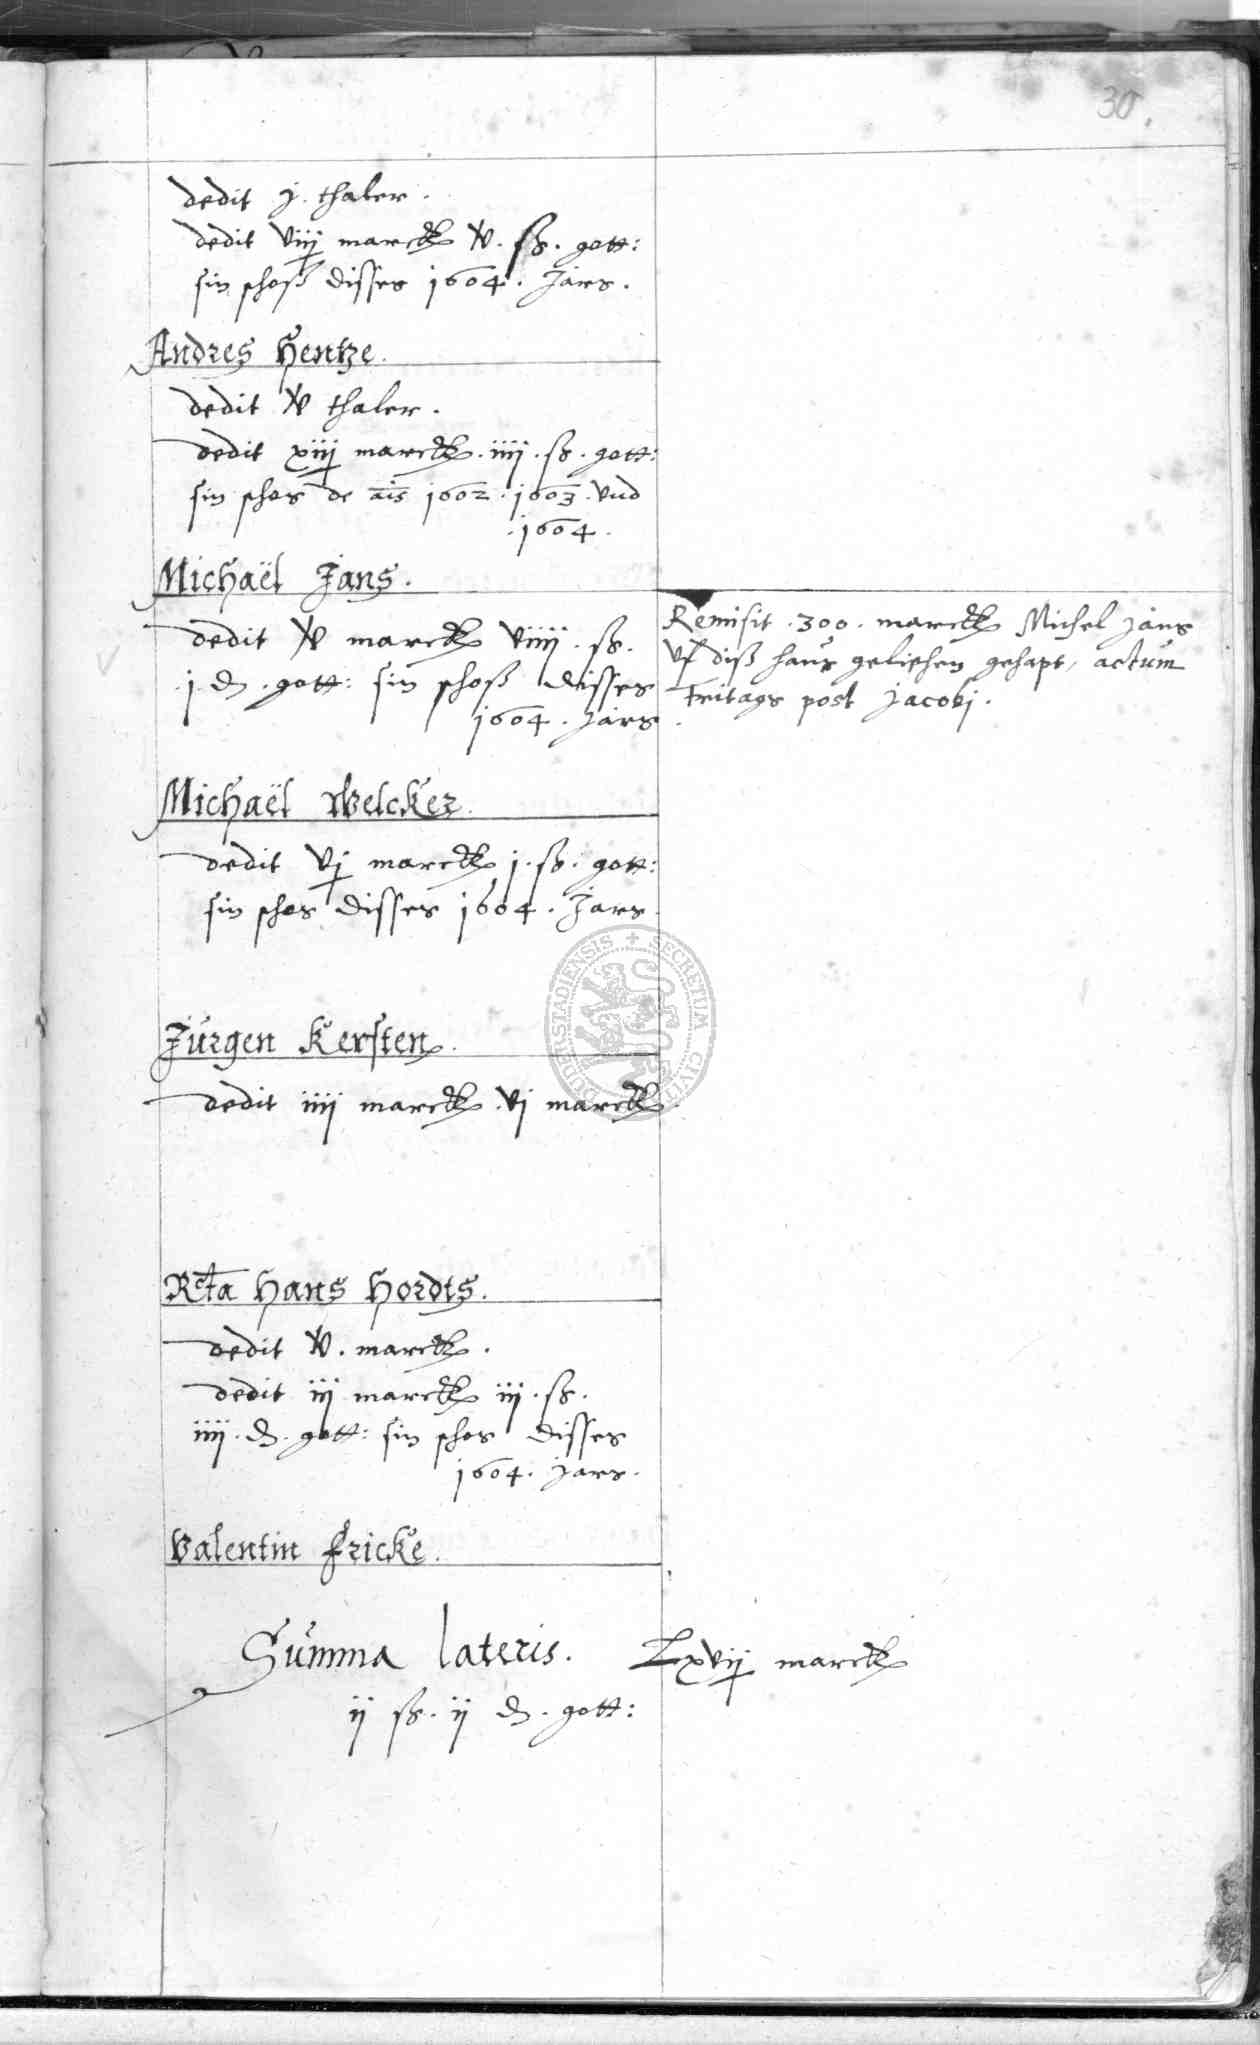 30.
dedit j. thaler.
dedit viij marck v. ß. gott:
sin schoß disses 1604. Jars.
Andres Hentze.
dedit v thaler.
dedit xiij marck. iiij. ß. gott:
sin schos de ais 1602. 1603. vnd
.1604.
Michaël Jans.
dedit v marck viiij. ß.
.j. d. gott: sin schoß disses
1604. Jars.
Remisit .300. marck Michel Jans
vf diß haus geliehen gehapt, actum
Fritags post Jacobj.
Michaël Welcker.
dedit vj marck j. ß. gott:
sin schos disses 1604. Jars.
Jürgen Kersten.
dedit iiij marck. vj marck.
Rcta Hans Hordts.
dedit v. marck.
dedit iij marck iij. ß.
iiij. d. gott: sin schos disses
1604. Jars.
Valentin Fricke.
Summa lateris. Lxvij marck
ij ß. ij d. gott:
SECRETUM CIVIT DUDERSTADIENSIS